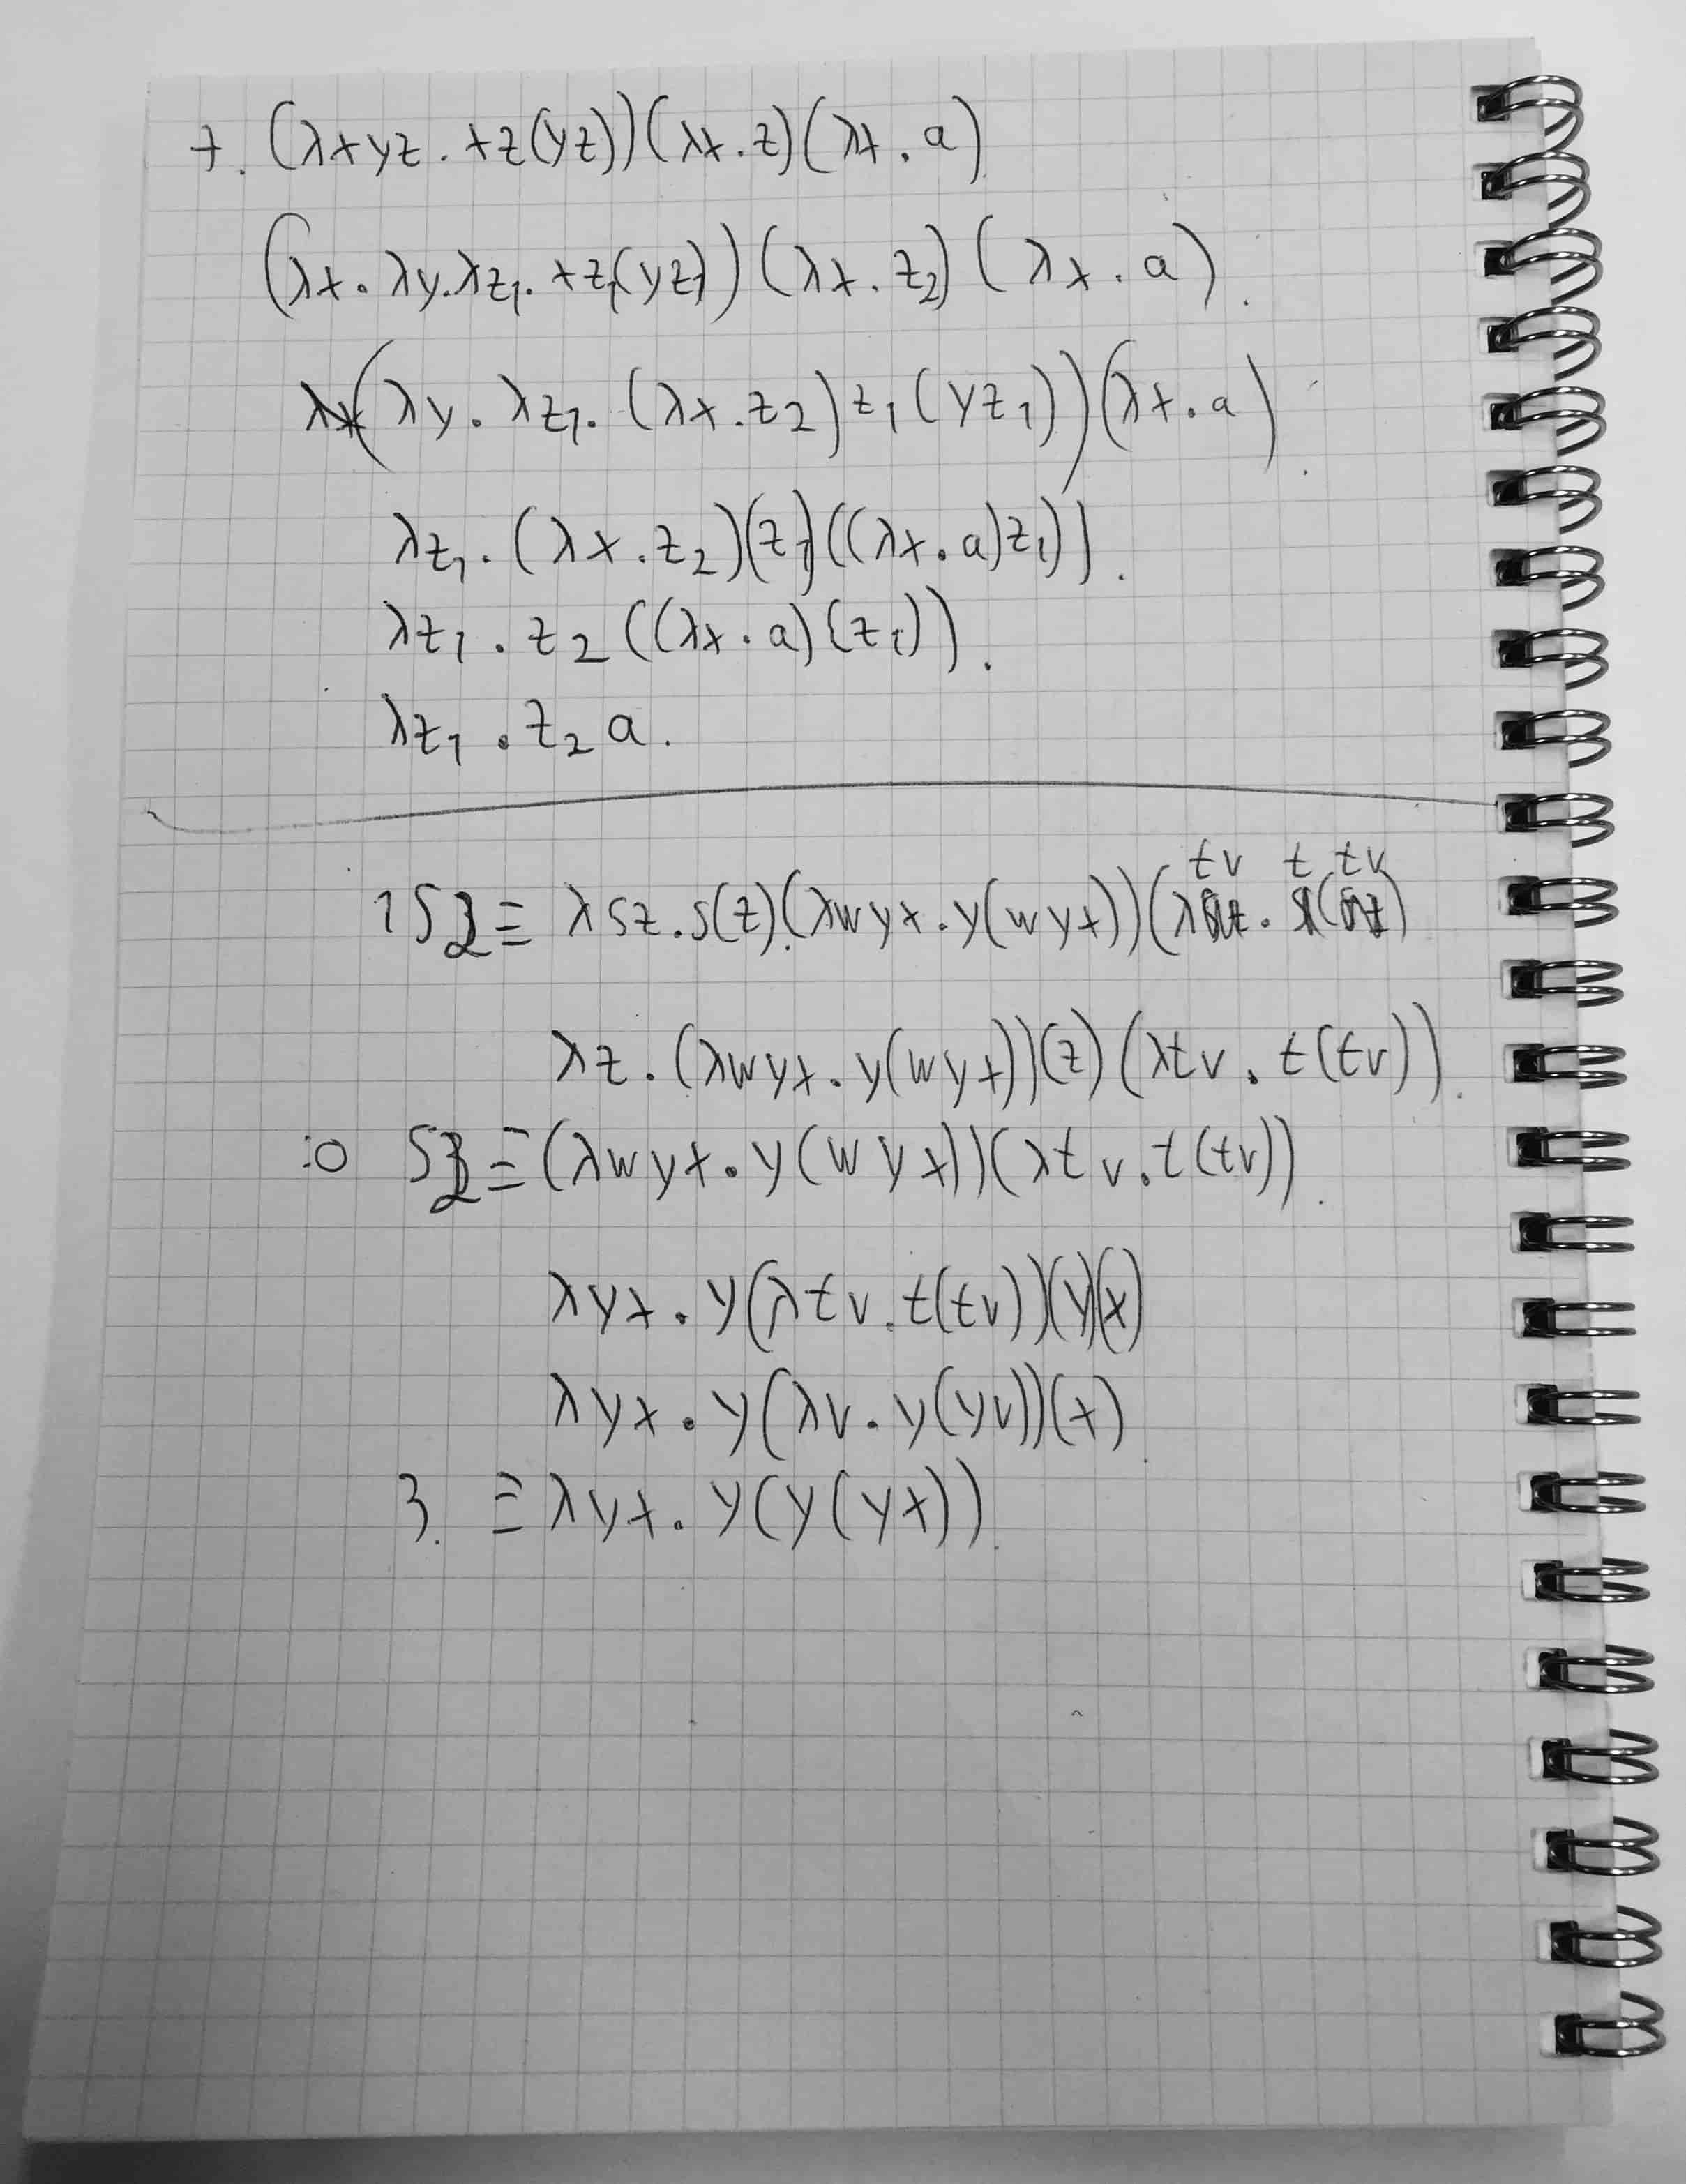 7. (λxyz.xz(yz))(λx.z)(λx.a)
(λx.λy.λz₁.xz₁(yz₁))(λx.z₂)(λx.a).
(λy.λz₁.(λx.z₂)z₁(yz₁))(λx.a).
λz₁.(λx.z₂)(z₁)((λx.a)z₁)).
λz₁.z₂((λx.a)(z₁)).
λz₁.z₂a.
tv t tv
1S2≡ λsz.s(z).(λwyx.y(wyx))(λ . ( )
λz.(λwyx.y(wyx))(z)(λtv.t(tv)).
:0 S2≡(λwyx.y(wyx))(λtv.t(tv)).
λyx.y(λtv.t(tv))(y)(x)
λyx.y(λv.y(yv))(x)
3. ≡λyx.y(y(yx)).